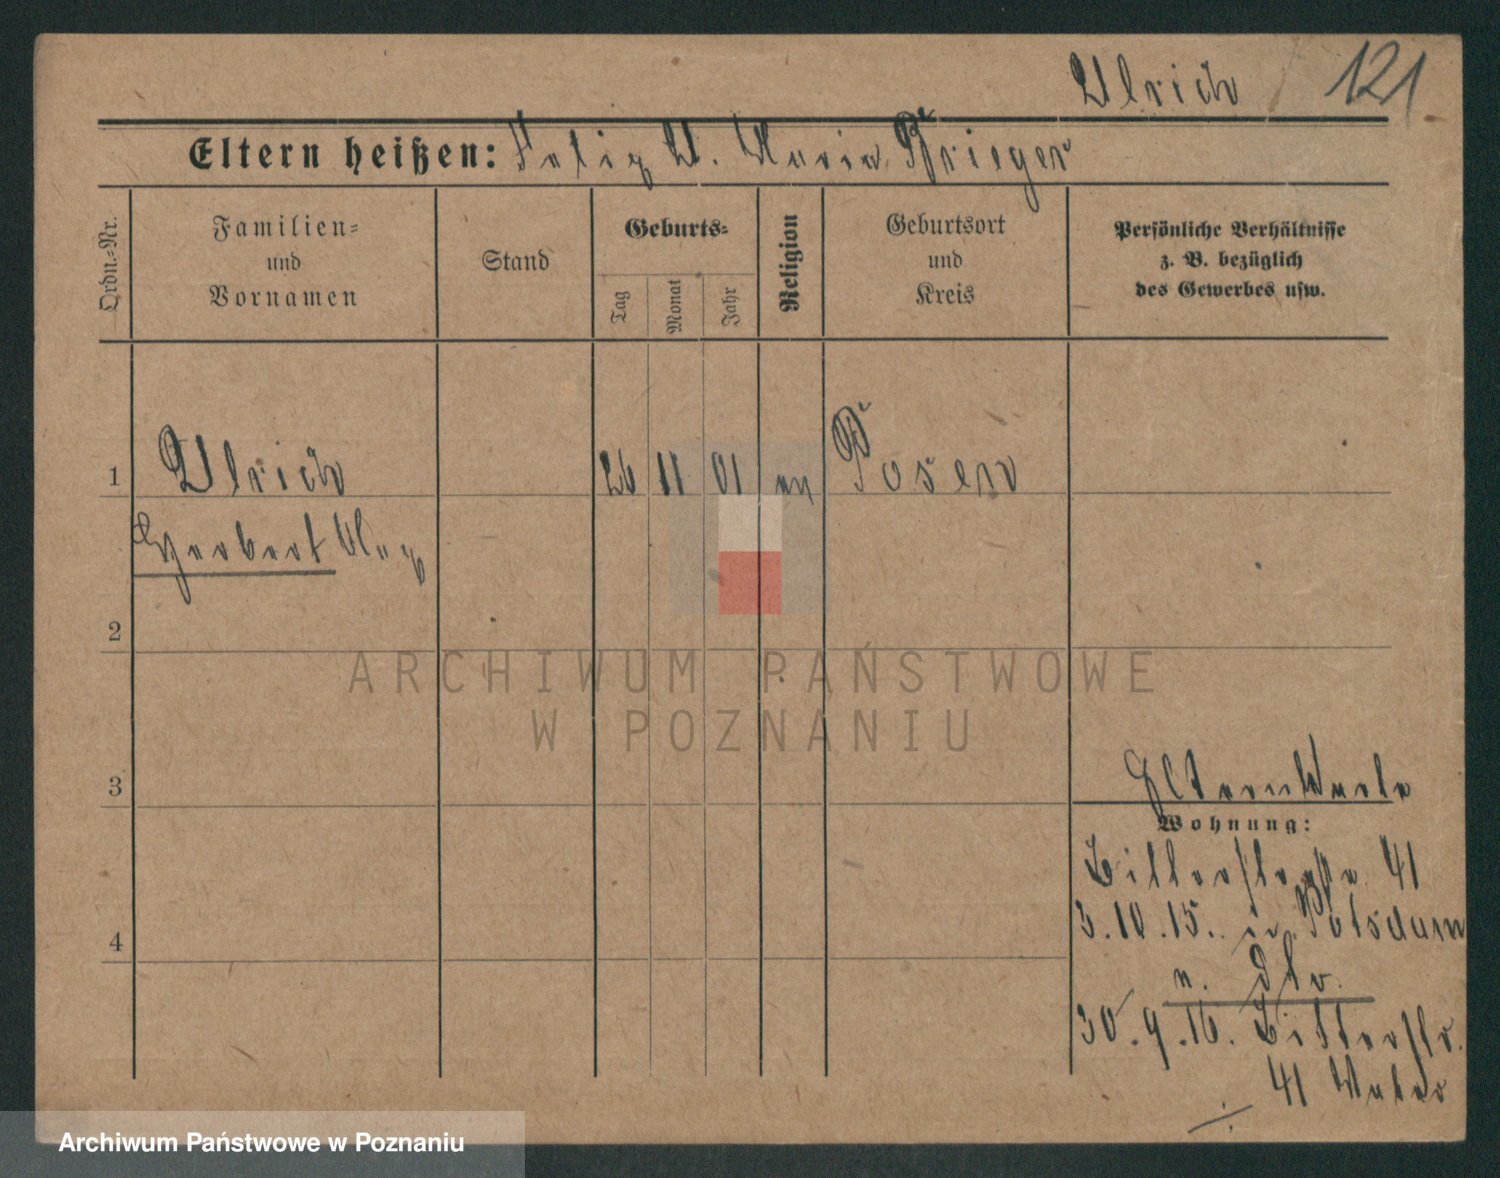 Ulrich 121
Eltern heißen: Felix U. Maria Krieger
Ordn.-Nr.
Familien-
und
Vornamen
Stand
Geburts-
Tag
Monat
Jahr
Religion
Geburtsort
und
Kreis
Persönliche Verhältnisse
z. B. bezüglich
des Gewerbes usw.
1 Ulrich 26 11 01 Posen
Herbert
2
3
Wohnung:
41
3.10.15. in Potsdam
n.
4
30.9.16.
41
ARCHIWUM PAŃSTWOWE
W POZNANIU
Archiwum Państwowe w Poznaniu